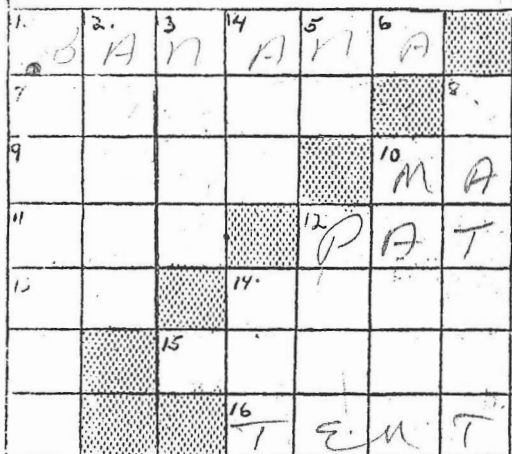 1. B 2. A 3 N 14 A 5 N 6 A
7 8.
9 10 M A
11 12 P A T
13 14.
15
16 T E N T